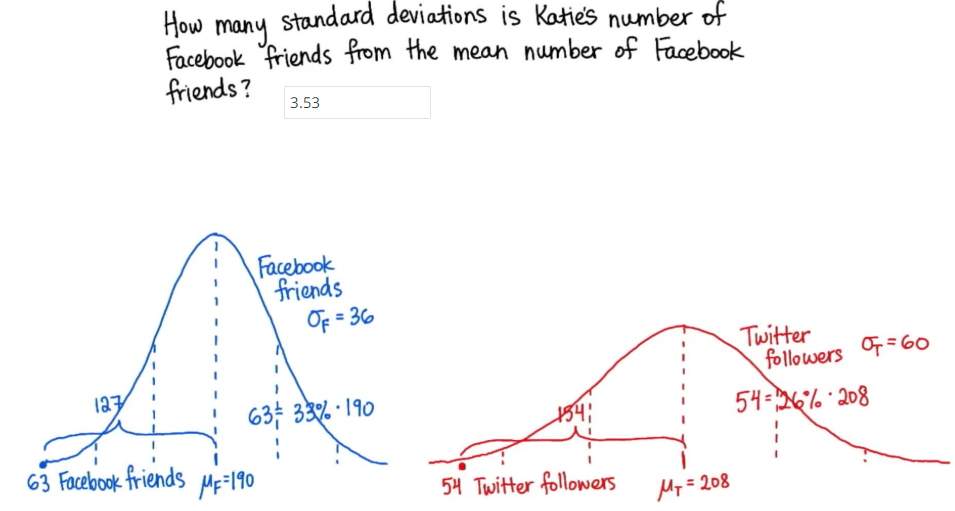 How many standard deviations is Katie's number of
Facebook friends from the mean number of Facebook
friends?
3.53
Facebook
friends
σF = 36
127
63 = 33% · 190
63 Facebook friends
μF = 190
Twitter
followers
σT = 60
154
54 = 26% · 208
54 Twitter followers
μT = 208